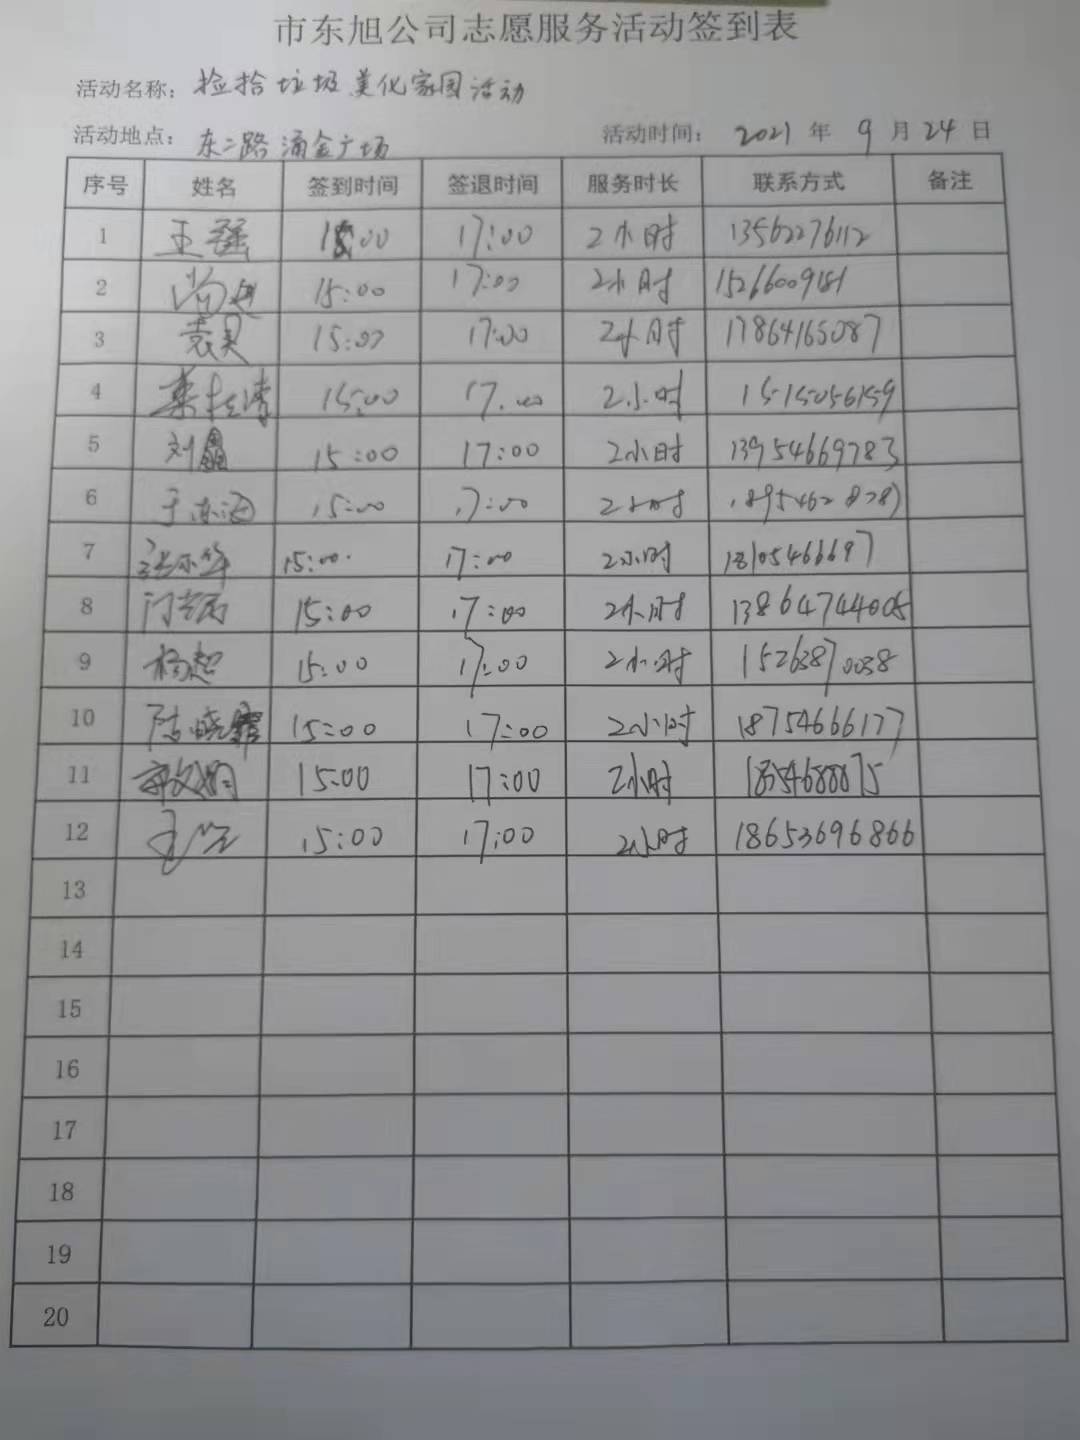 市东旭公司志愿服务活动签到表
活动名称: 捡拾垃圾美化家园活动
活动地点: 东二路涌金广场 活动时间: 2021 年 9 月 24 日
序号 姓名 签到时间 签退时间 服务时长 联系方式 备注
1 王瑶 15:00 17:00 2小时 13562276112
2 15:00 17:00 2小时
3 袁昊 15:00 17:00 2小时 17864165087
4 15:00 17:00 2小时 15615056159
5 刘鑫 15:00 17:00 2小时 13954669783
6 于东海 15:00 17:00 2小时
7 15:00 17:00 2小时 18105466697
8 15:00 17:00 2小时 13864744005
9 杨超 15:00 17:00 2小时 15263870038
10 陈晓霏 15:00 17:00 2小时 18754666177
11 15:00 17:00 2小时
12 15:00 17:00 2小时 18653696866
13
14
15
16
17
18
19
20